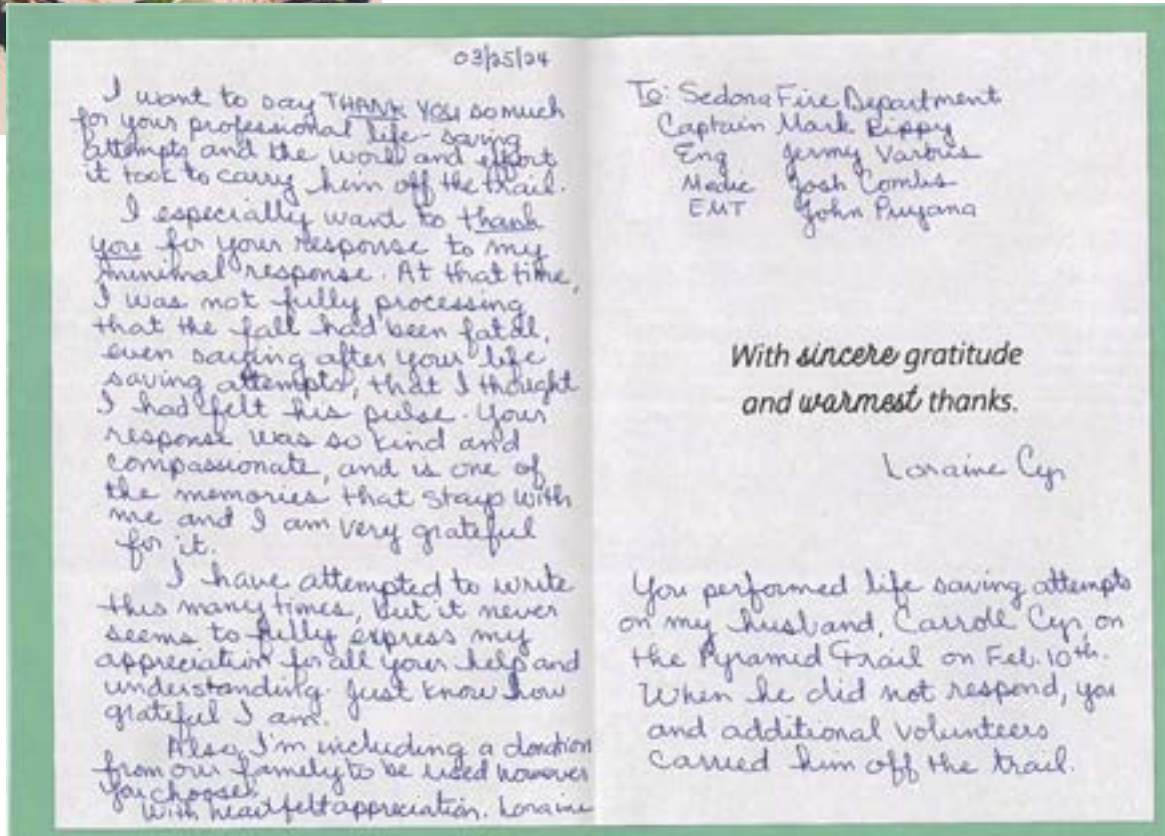 03/25/24
I want to say THANK YOU so much
for your professional life-saving
attempts and the work and effort
it took to carry him off the trail.
I especially want to thank
you for your response to my
minimal response. At that time,
I was not fully processing
that the fall had been fatal,
even saying after your life
saving attempts, that I thought
I had felt his pulse. Your
response was so kind and
compassionate, and is one of
the memories that stays with
me and I am very grateful
for it.
I have attempted to write
this many times, but it never
seems to fully express my
appreciation for all your help and
understanding. Just know how
grateful I am.
Also, I'm including a donation
from our family to be used however
you choose.
With heartfelt appreciation. Loraine
To: Sedona Fire Department
Captain Mark Rippy
Eng Jermy
Medic Josh Combs
EMT John Puyana
With sincere gratitude
and warmest thanks.
Loraine Cyr
You performed life saving attempts
on my husband, Carroll Cyr, on
the Pyramid Trail on Feb. 10th.
When he did not respond, you
and additional volunteers
carried him off the trail.